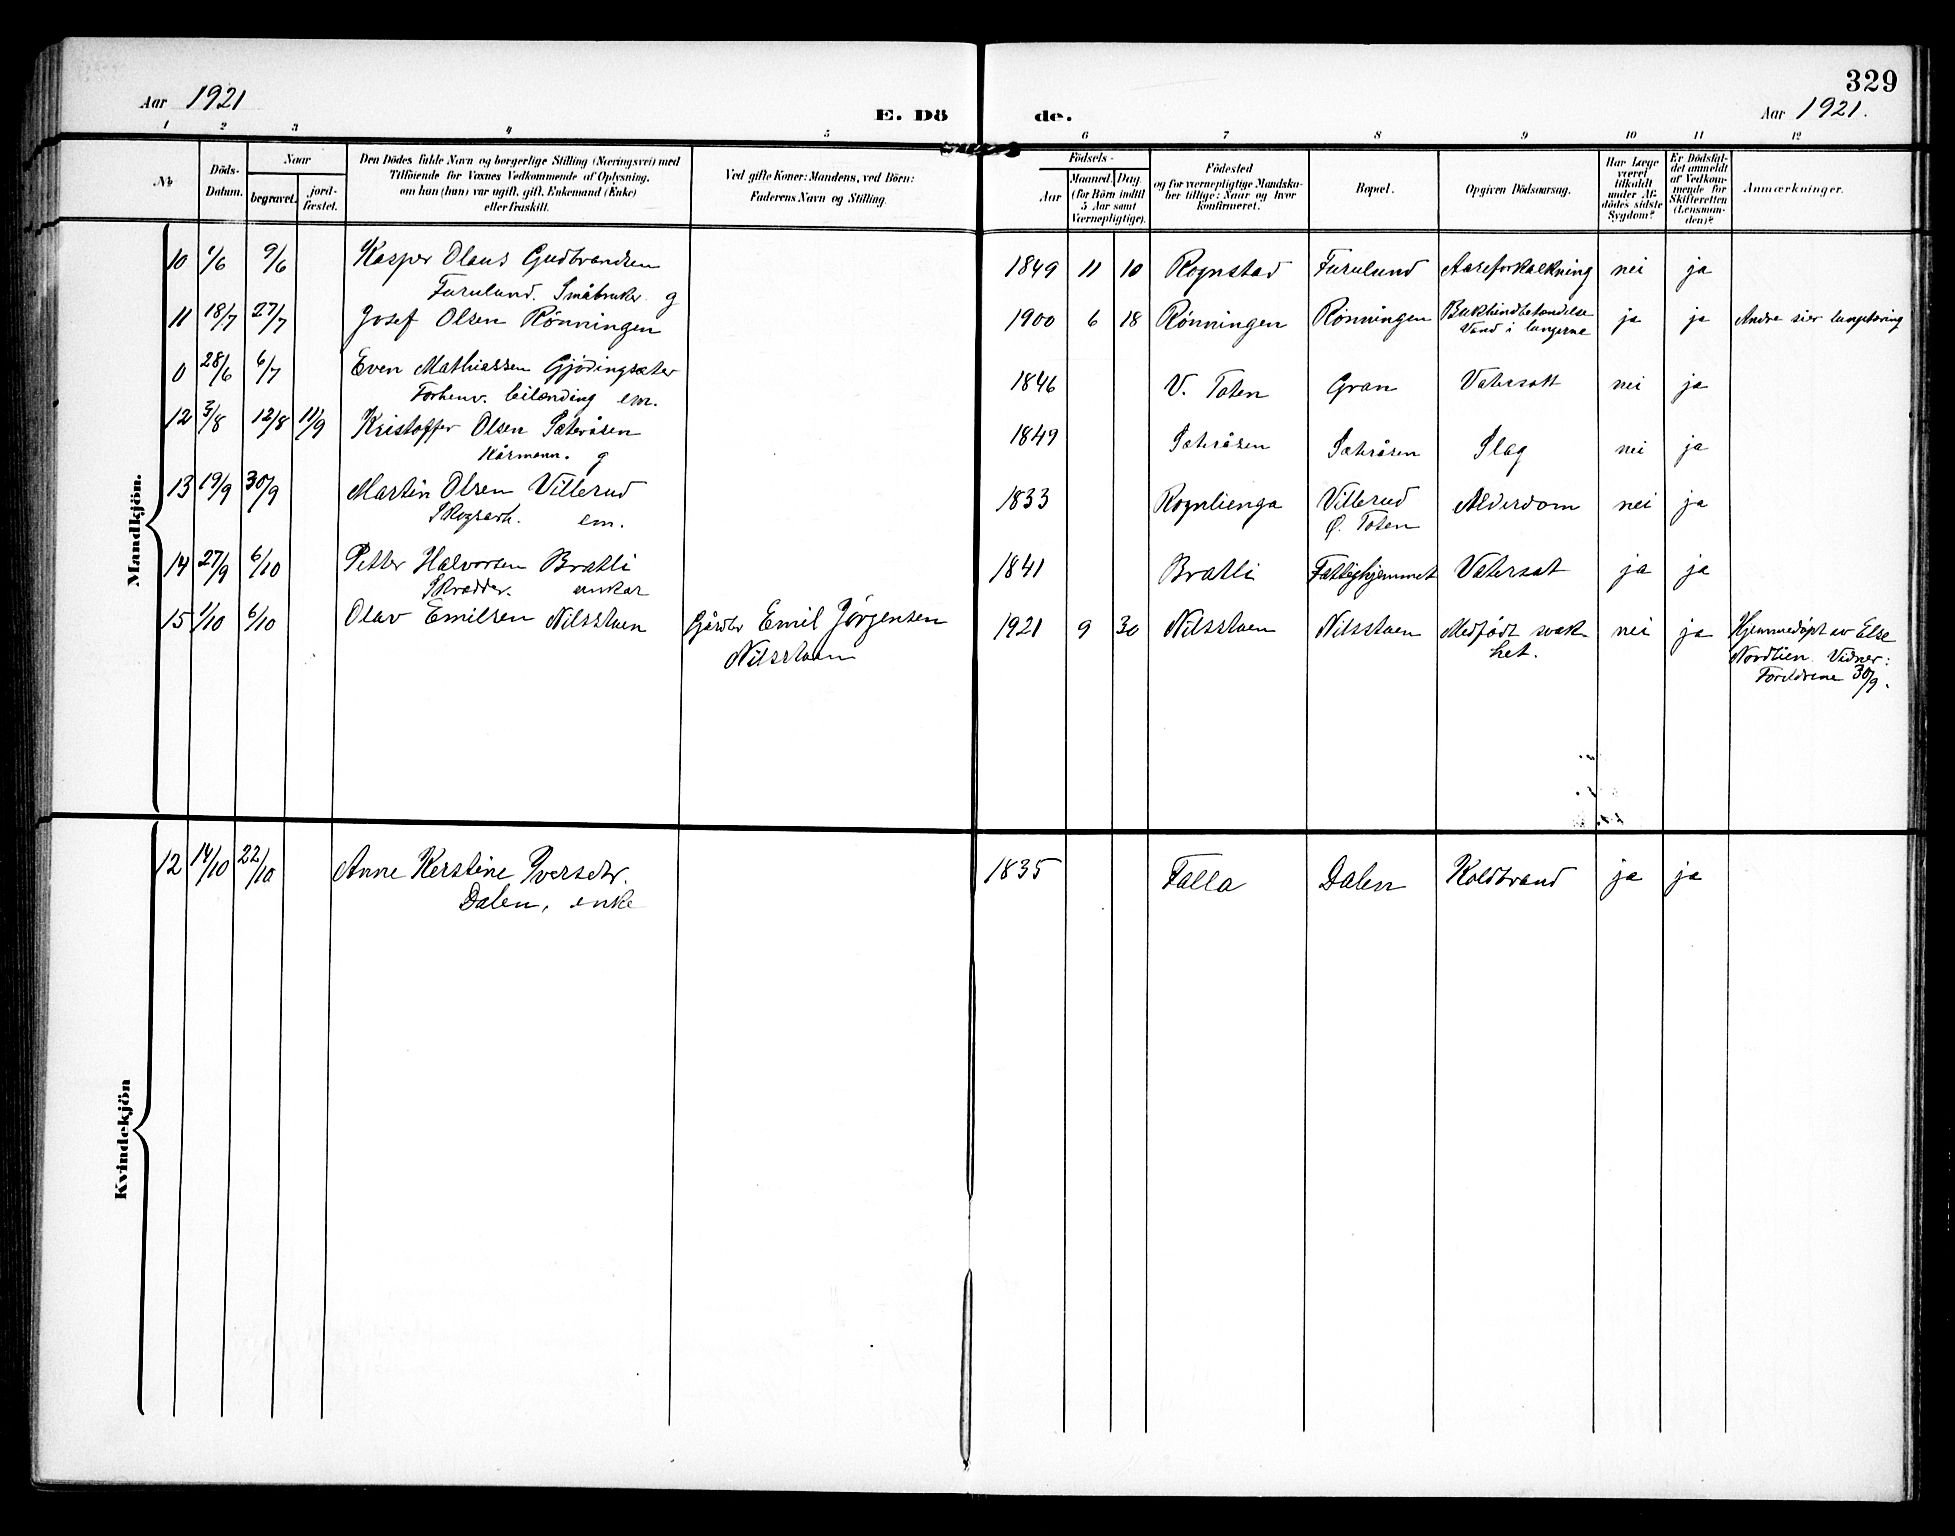 329
Aar 1921
E. Dö de.
Aar 1921.
1 2 3 4 5 6 7 8 9 10 11 12
No
Döds-
Datum.
Naar
begravet.
jord-
fæstet.
Den Dödes fulde Navn og borgerlige Stilling (Næringsvei) med
Tilföiende for Voxnes Vedkommende af Oplysning,
om han (hun) var ugift, gift, Enkemand (Enke)
eller fraskilt.
Ved gifte Koner: Mandens, ved Börn:
Faderens Navn og Stilling.
Födsels-
Aar
Maaned. Dag.
(for Börn indtil
5 Aar samt
Værnepligtige).
Födested
og for værnepligtige Mandska-
ber tillige: Naar og hvor
konfirmeret.
Bopæl.
Opgiven Dödsaarsag.
Har Læge
været
tilkaldt
under Af-
dödes sidste
Sygdom?
Er Dödsfal-
det anmeldt
af Vedkom-
mende for
Skifteretten
(Lensman-
den)?
Anmærkninger.
Mandkjön.
10 1/6 9/6 Kasper Olaus Gudbrandsen 1849 11 10 Rognstad Furulund Aareforkalkning nei ja
Furulund. Småbruker g
11 18/7 27/7 Josef Olsen Rönningen 1900 6 18 Rönningen Rönningen Bukhindbetændelse ja ja Andre sier lungetæring
Vand i lungerne
0 28/6 6/7 Even Mathiassen Gjödingsæter 1846 V. Toten Gran Vatersott nei ja
Forhenv. em.
12 3/8 12/8 11/9 Kristoffer Olsen Sæteråsen 1849 Sæteråsen Sæteråsen Slag nei ja
Kårmann. g
13 19/9 30/9 Martin Olsen Villerud 1833 Rognlienga Villerud Alderdom nei ja
Skogsarb. em. Ø. Toten
14 27/9 6/10 Petter Halvorsen Bratli 1841 Bratli Fattighjemmet Vatersot ja ja
Skrædder. enkem
15 1/10 6/10 Olav Emilsen Nilsstuen Gårdbr Emil Jörgensen 1921 9 30 Nilsstuen Nilsstuen Medfödt svak- nei ja Hjemmedöpt av Else
Nilsstuen het. Nordlien. Vidner:
Foreldrene 30/9.
Kvindekjön
12 14/10 22/10 Anne Kerstine Iversdtr. 1835 Falla Dalen Koldbrand ja ja
Dalen, enke